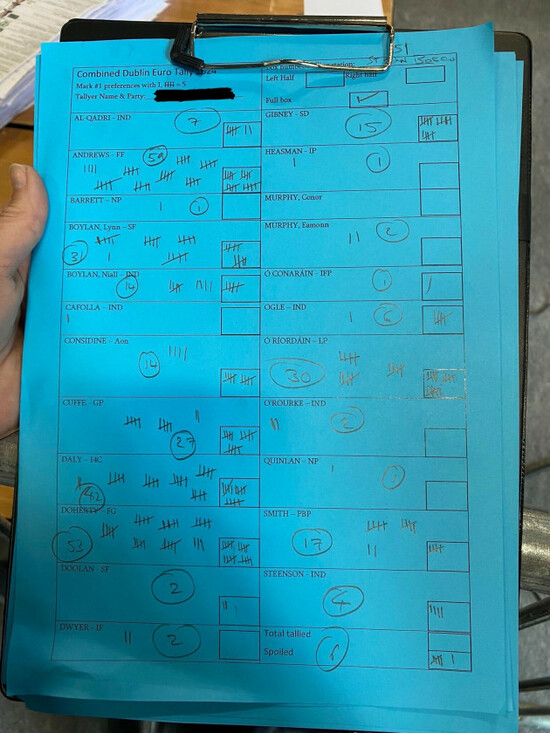 Combined Dublin Euro Tally 2024
Mark #1 preferences with I, 卌 = 5
Tallyer Name & Party:
Left Half
Right Half
Full box ✓
AL-QADRI – IND 7
ANDREWS – FF 59
BARRETT – NP 1
BOYLAN, Lynn – SF 31
BOYLAN, Niall – IND 14
CAFOLLA – IND
CONSIDINE – Aon 14
CUFFE – GP 27
DALY – I4C 42
DOHERTY – FG 53
DOOLAN – SF 2
DWYER – IF 2
GIBNEY – SD 15
HEASMAN – IP 1
MURPHY, Conor
MURPHY, Eamonn 2
Ó CONARÁIN – IFP 1
OGLE – IND 6
Ó RÍORDÁIN – LP 30
O'ROURKE – IND 2
QUINLAN – NP
SMITH – PBP 17
STEENSON – IND 4
Total tallied
Spoiled 6